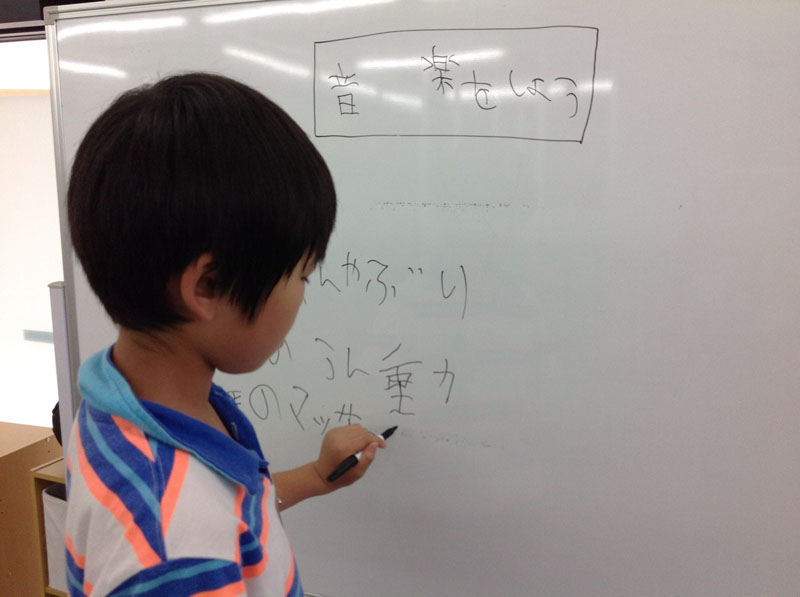 音 楽をしよう
んやぶり
うん重力
のマッサ